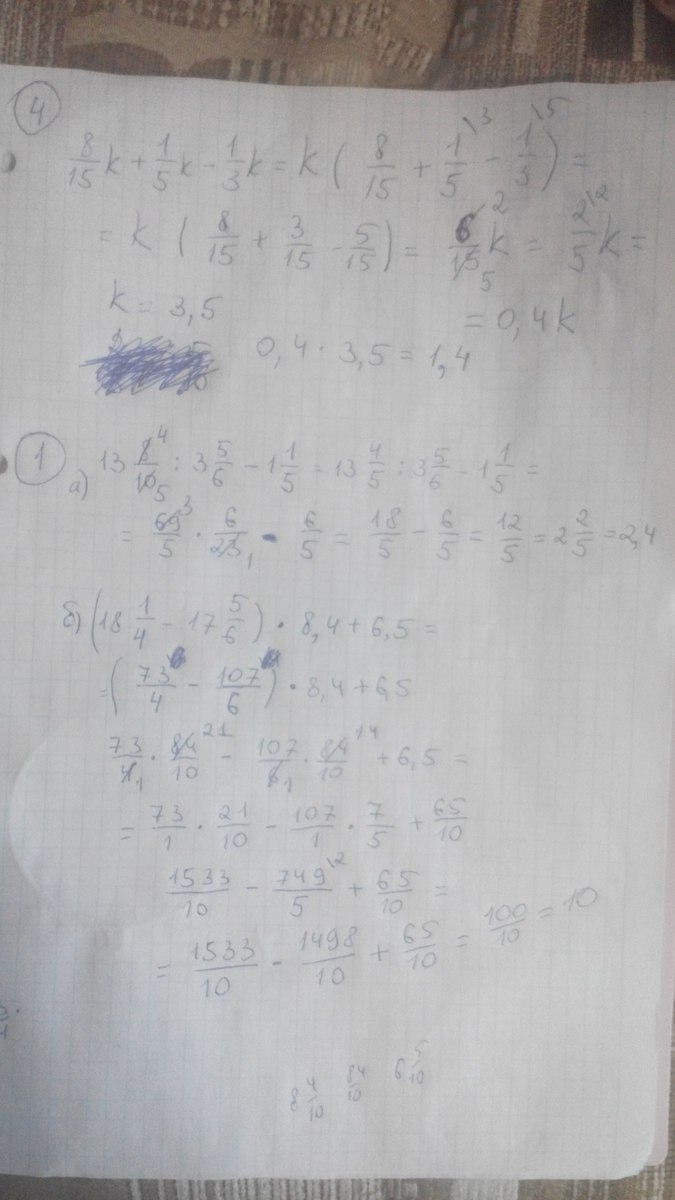 4
8/15 k + 1/5 k - 1/3 k = k ( 8/15 + 1/5 \3 - 1/3 \5 ) =
= k ( 8/15 + 3/15 - 5/15 ) = 6/15 2 5 k = 2/5 \2 k =
k = 3,5
= 0,4k
0,4 · 3,5 = 1,4
1
а) 13 8/10 4 5 : 3 5/6 - 1 1/5 = 13 4/5 : 3 5/6 - 1 1/5 =
= 69/5 3 · 6/23 1 - 6/5 = 18/5 - 6/5 = 12/5 = 2 2/5 = 2,4
б) (18 1/4 - 17 5/6) · 8,4 + 6,5 =
= ( 73/4 - 107/6 ) · 8,4 + 6,5
73/4 1 · 84/10 21 - 107/6 1 · 84/10 14 + 6,5 =
= 73/1 · 21/10 - 107/1 · 7/5 + 65/10
1533/10 - 749/5 \2 + 65/10 =
= 1533/10 - 1498/10 + 65/10 = 100/10 = 10
8 4/10 84/10 6 5/10